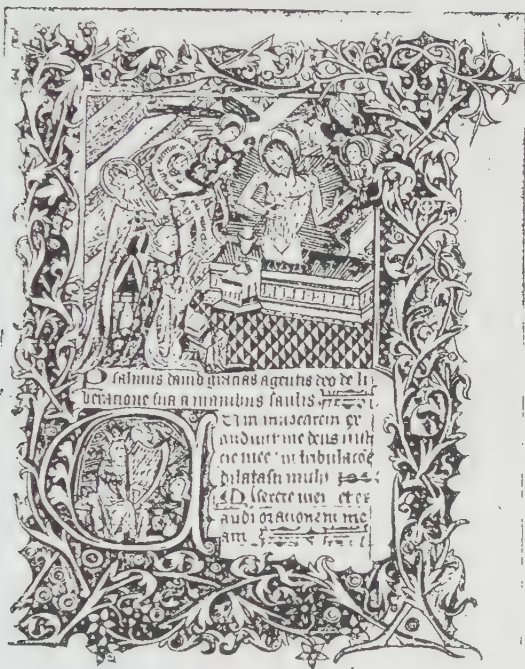 Psalmus david gracias agentis deo de li
beracione sua a manibus saulis
Cum invocarem ex
audivit me deus iusti
cie mee in tribulacoe
dilatasti michi
Miserere mei et ex
audi orationem me
am